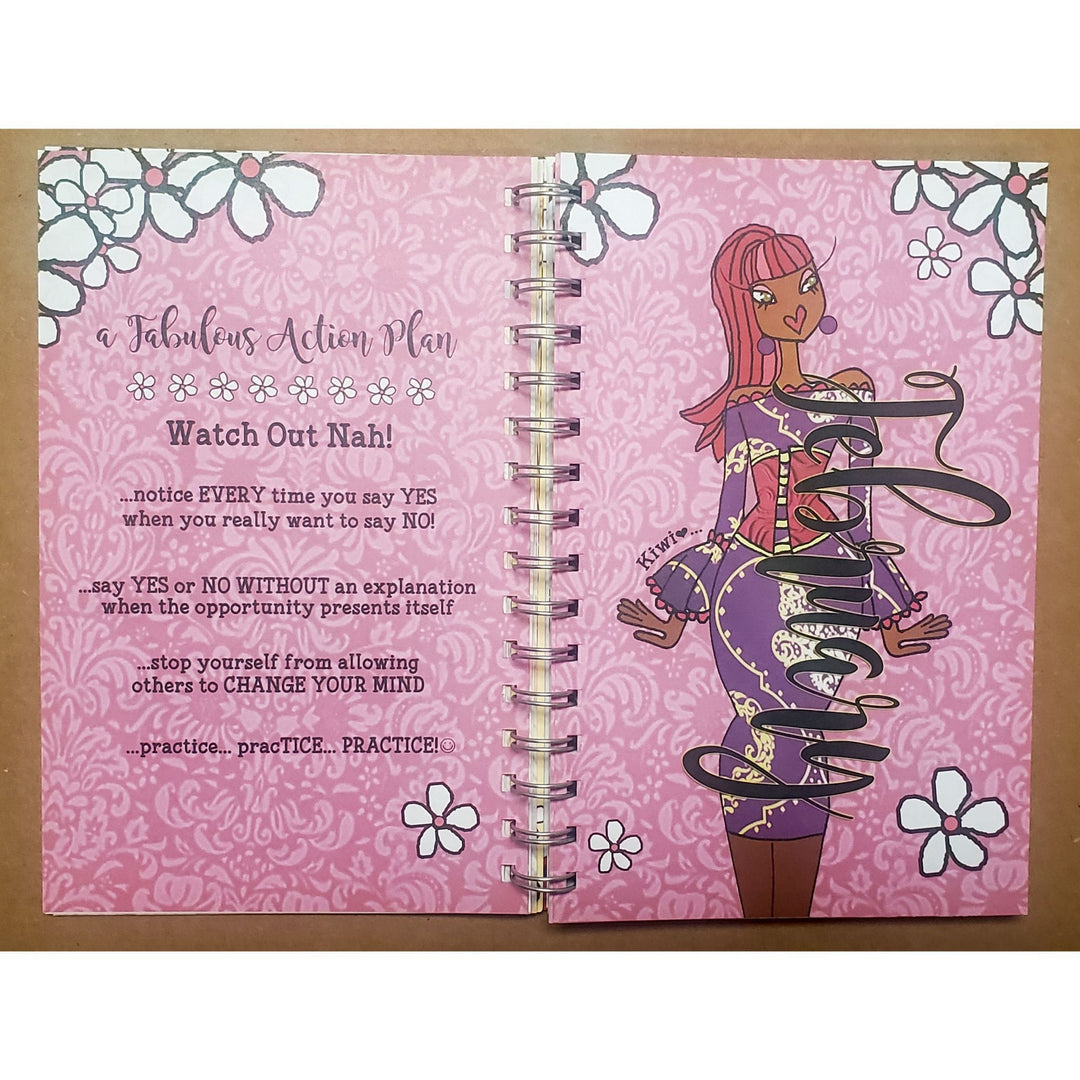 a Fabulous Action Plan
Watch Out Nah!
...notice EVERY time you say YES
when you really want to say NO!
...say YES or NO WITHOUT an explanation
when the opportunity presents itself
...stop yourself from allowing
others to CHANGE YOUR MIND
...practice... pracTICE... PRACTICE!☺
Kiwi♥...
February